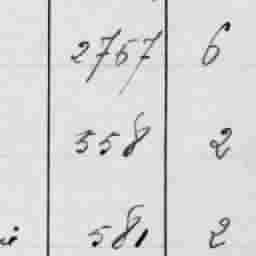 2767 6
558 2
581 2